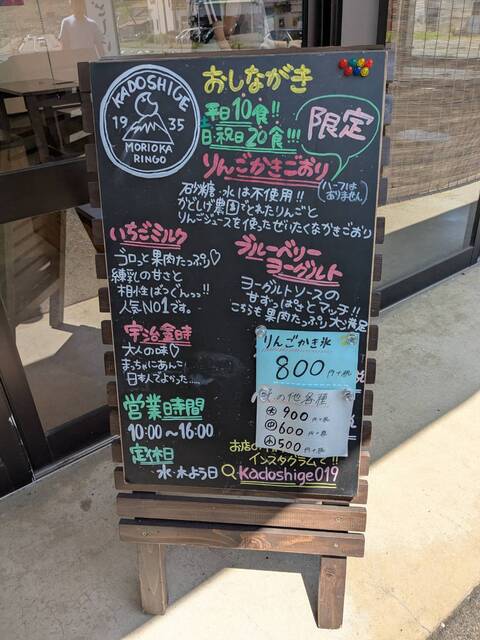 KADOSHIGE
1935
MORIOKA
RINGO
おしながき
平日10食!!
日・祝日20食!!!
限定
りんごかきごおり
(ハーフは
ありません)
石砂糖・水は不使用!!
かどしげ農園でとれたりんごと
りんごジュースを使ったぜいたくなかきごおり
いちごミルク
ゴロっと果肉たっぷり♡
練乳の甘さと
相性ばつぐんっ!!
人気No1です。
ブルーベリー
ヨーグルト
ヨーグルトソースの
甘ずっぱさとマッチ!!
こちらも果肉たっぷり大満足
宇治金時
大人の味♡
まっちゃにあんこ!
日本人でよかった....
りんごかき氷
800円+税
その他各種
大 900円+税
中 600円+税
小 500円+税
営業時間
10:00〜16:00
定休日
水・木よう日
お店の
インスタグラムで!!
Kadoshige019